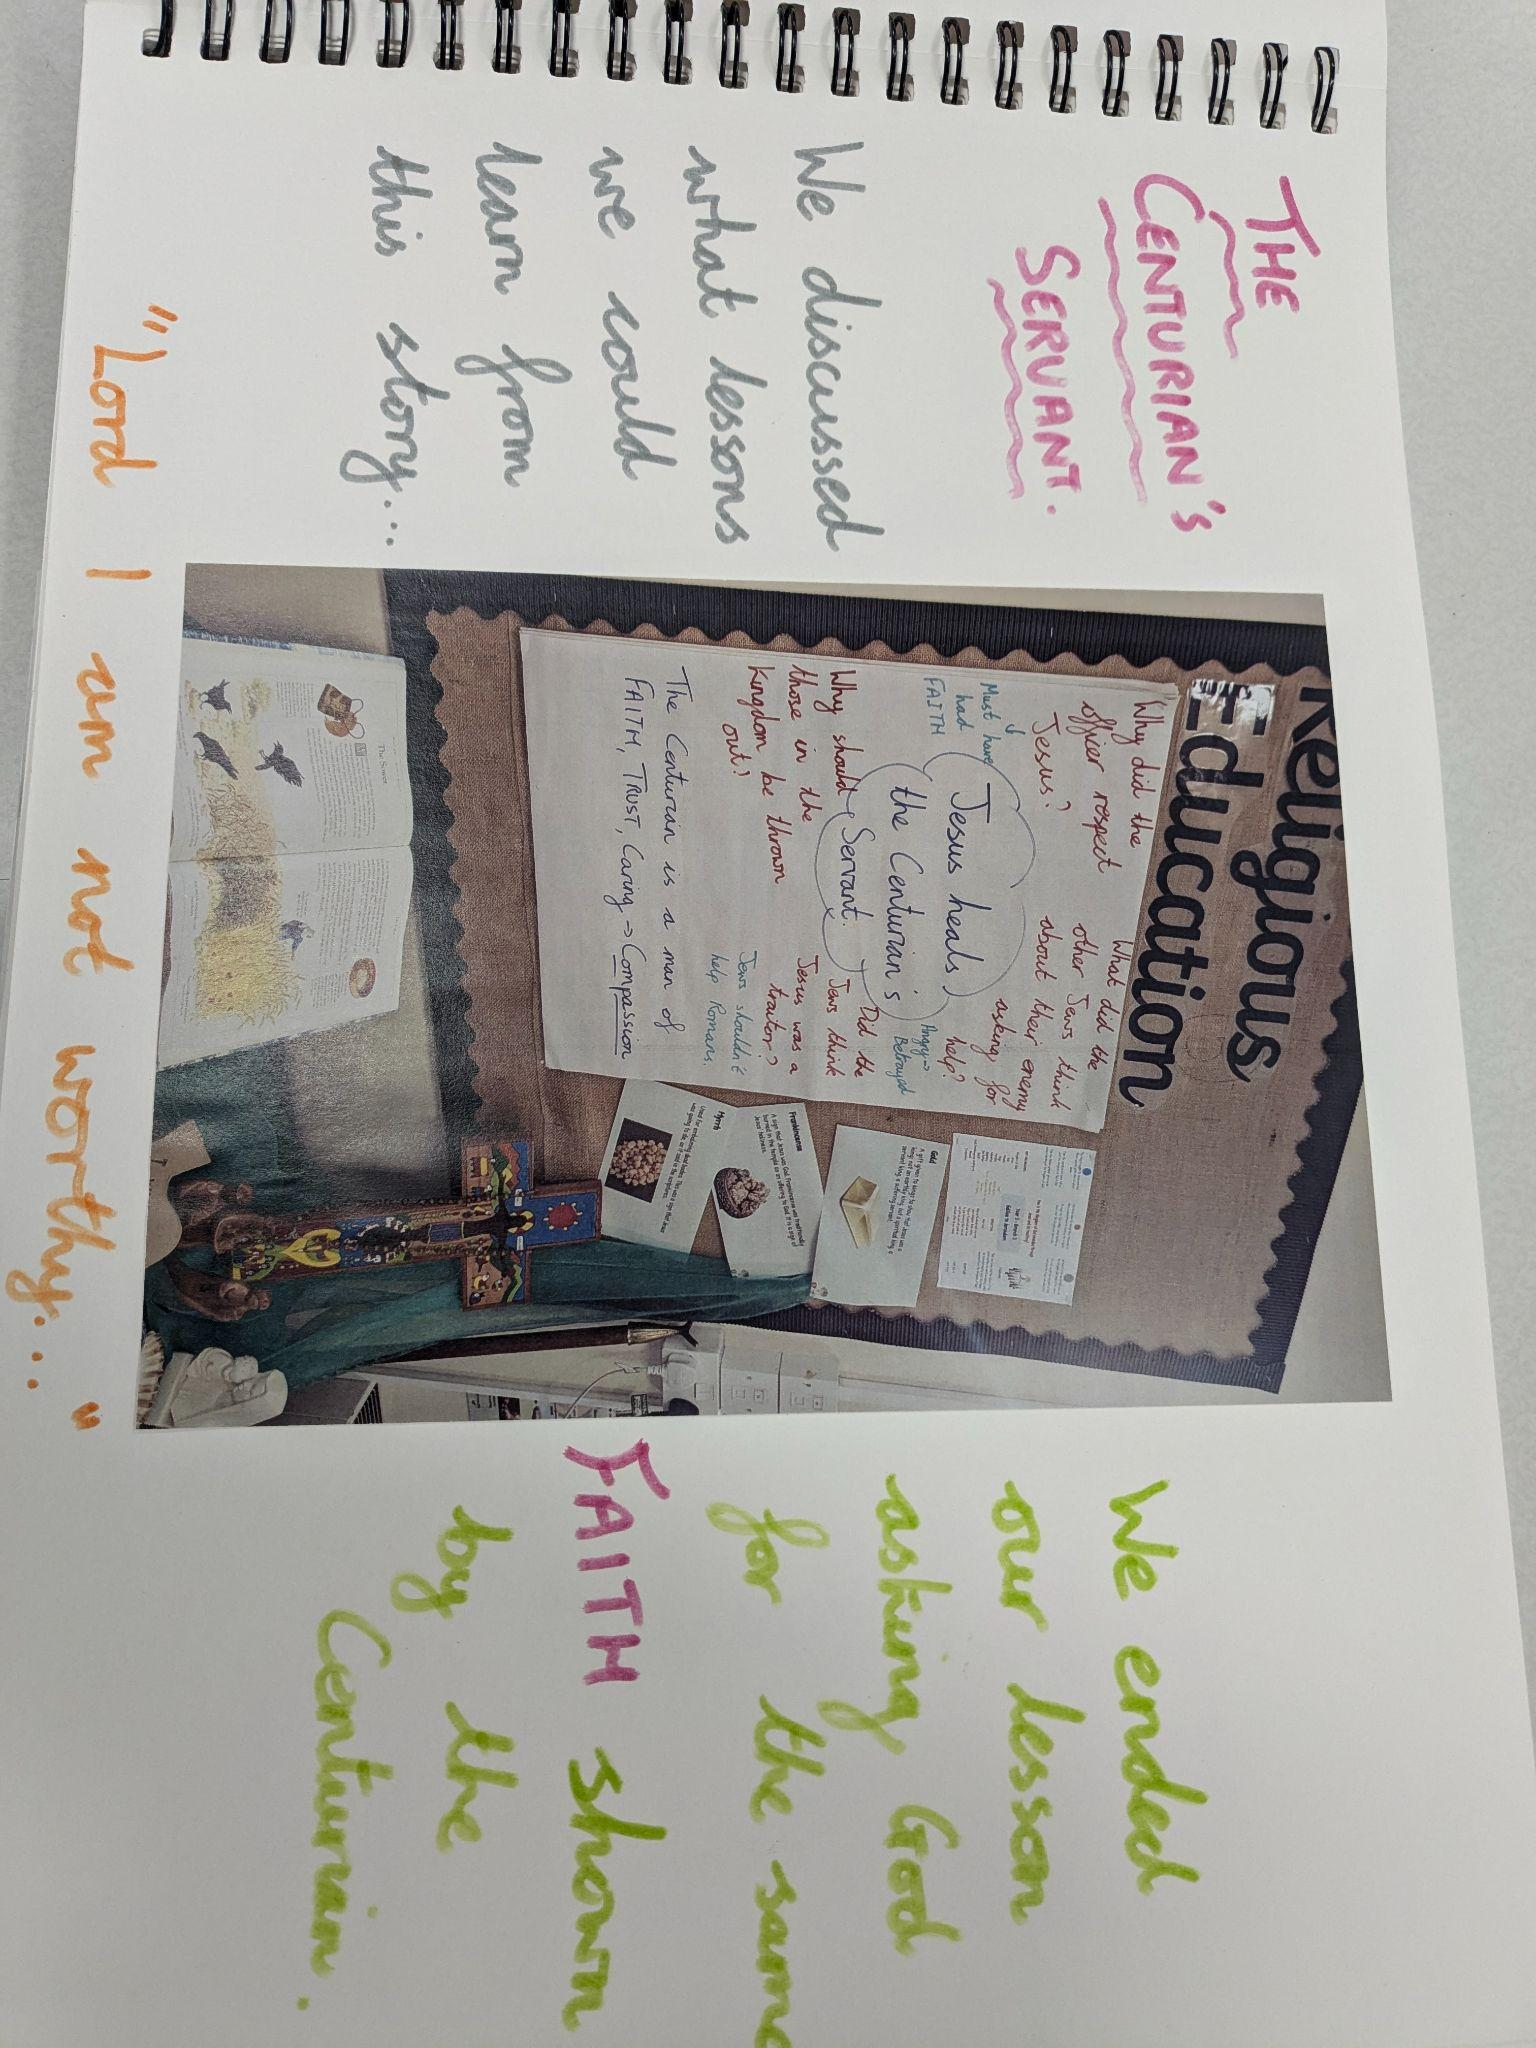 THE
CENTURIAN's
SERVANT.
We discussed
what lessons
we could
learn from
this story...
Religious
Education
Why did the
officer respect
Jesus?
Must have
had
FAITH
What did the
other Jews think
about their enemy
asking for
help?
Angry →
Betrayed
Jesus heals
the Centurian's
Servant.
Why should
those in the
Kingdom be thrown
out?
Did the
Jews think
Jesus was a
traitor?
Jews shouldn't
help Romans.
The Centurian is a man of
FAITH, TRUST, Caring → Compassion
Gold
Frankincense
Myrrh
The Sower
We ended
our lesson
asking God
for the same
FAITH shown
by the
Centurian.
"Lord I am not worthy..."